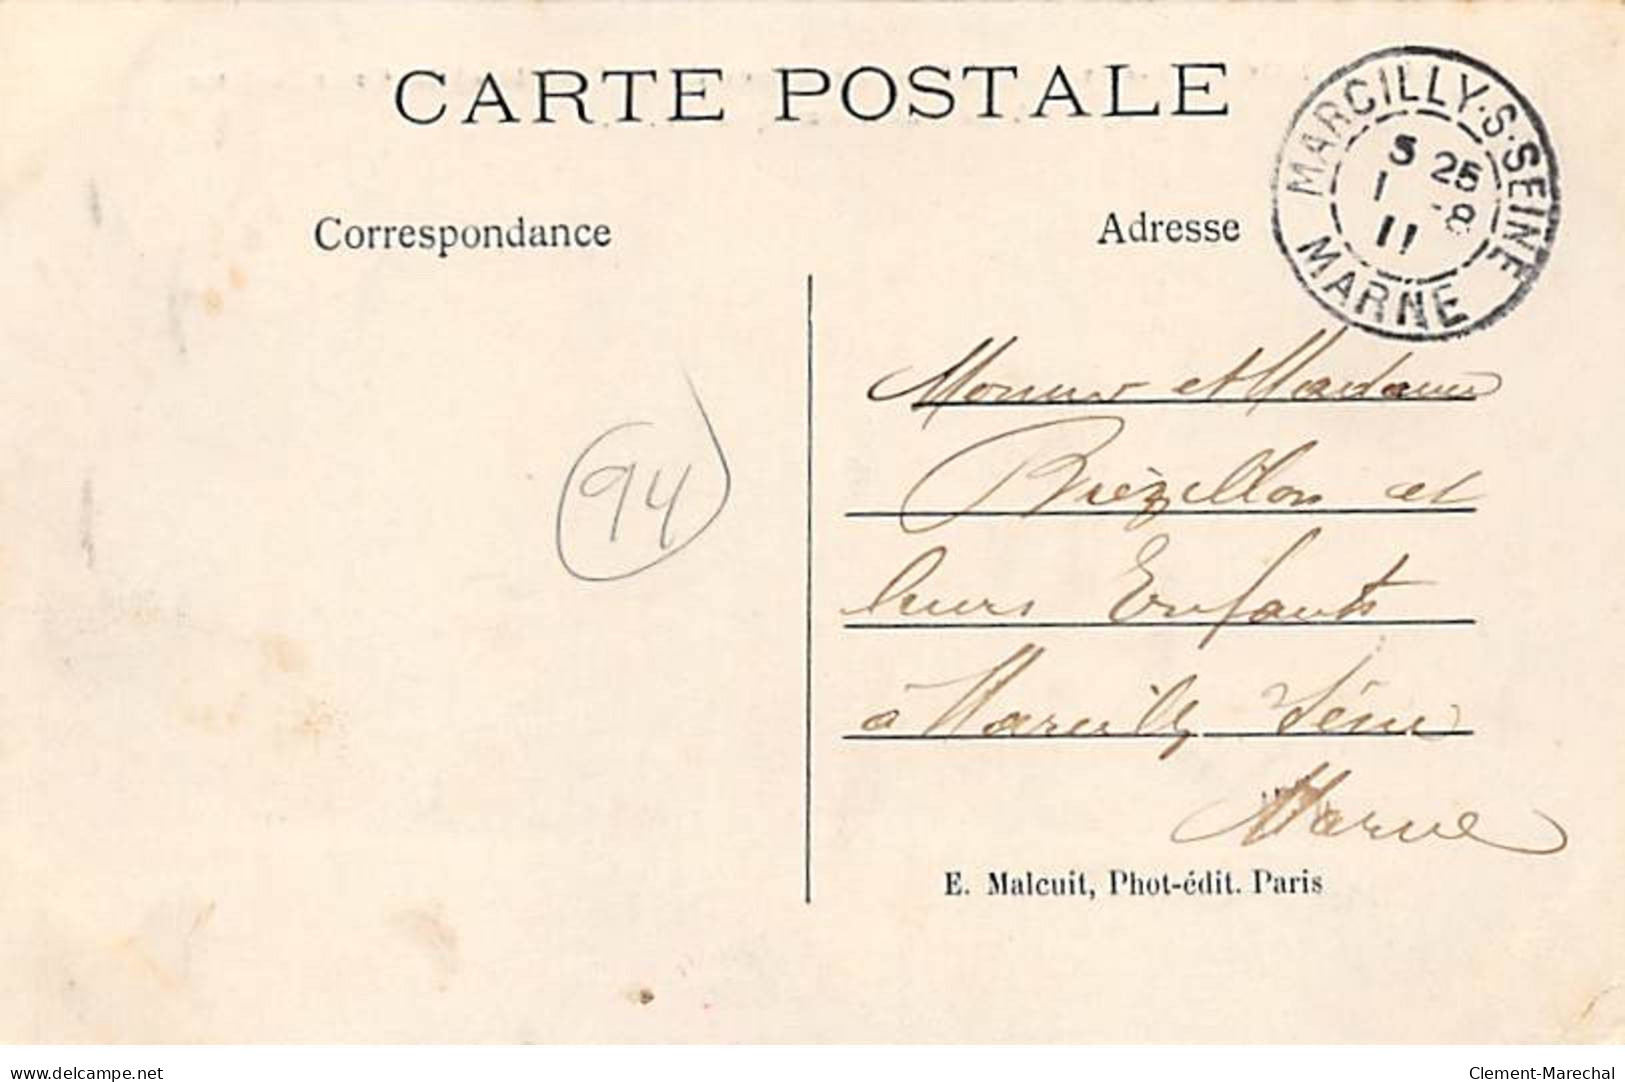 CARTE POSTALE
MARCILLY·S·SEINE
5 25
1 -8
11
MARNE
Correspondance
Adresse
94
Monsieur et Madame
Brézillon et
leurs Enfants
à Marcilly Seine
Marne
E. Malcuit, Phot-édit. Paris
www.delcampe.net
Clement-Marechal